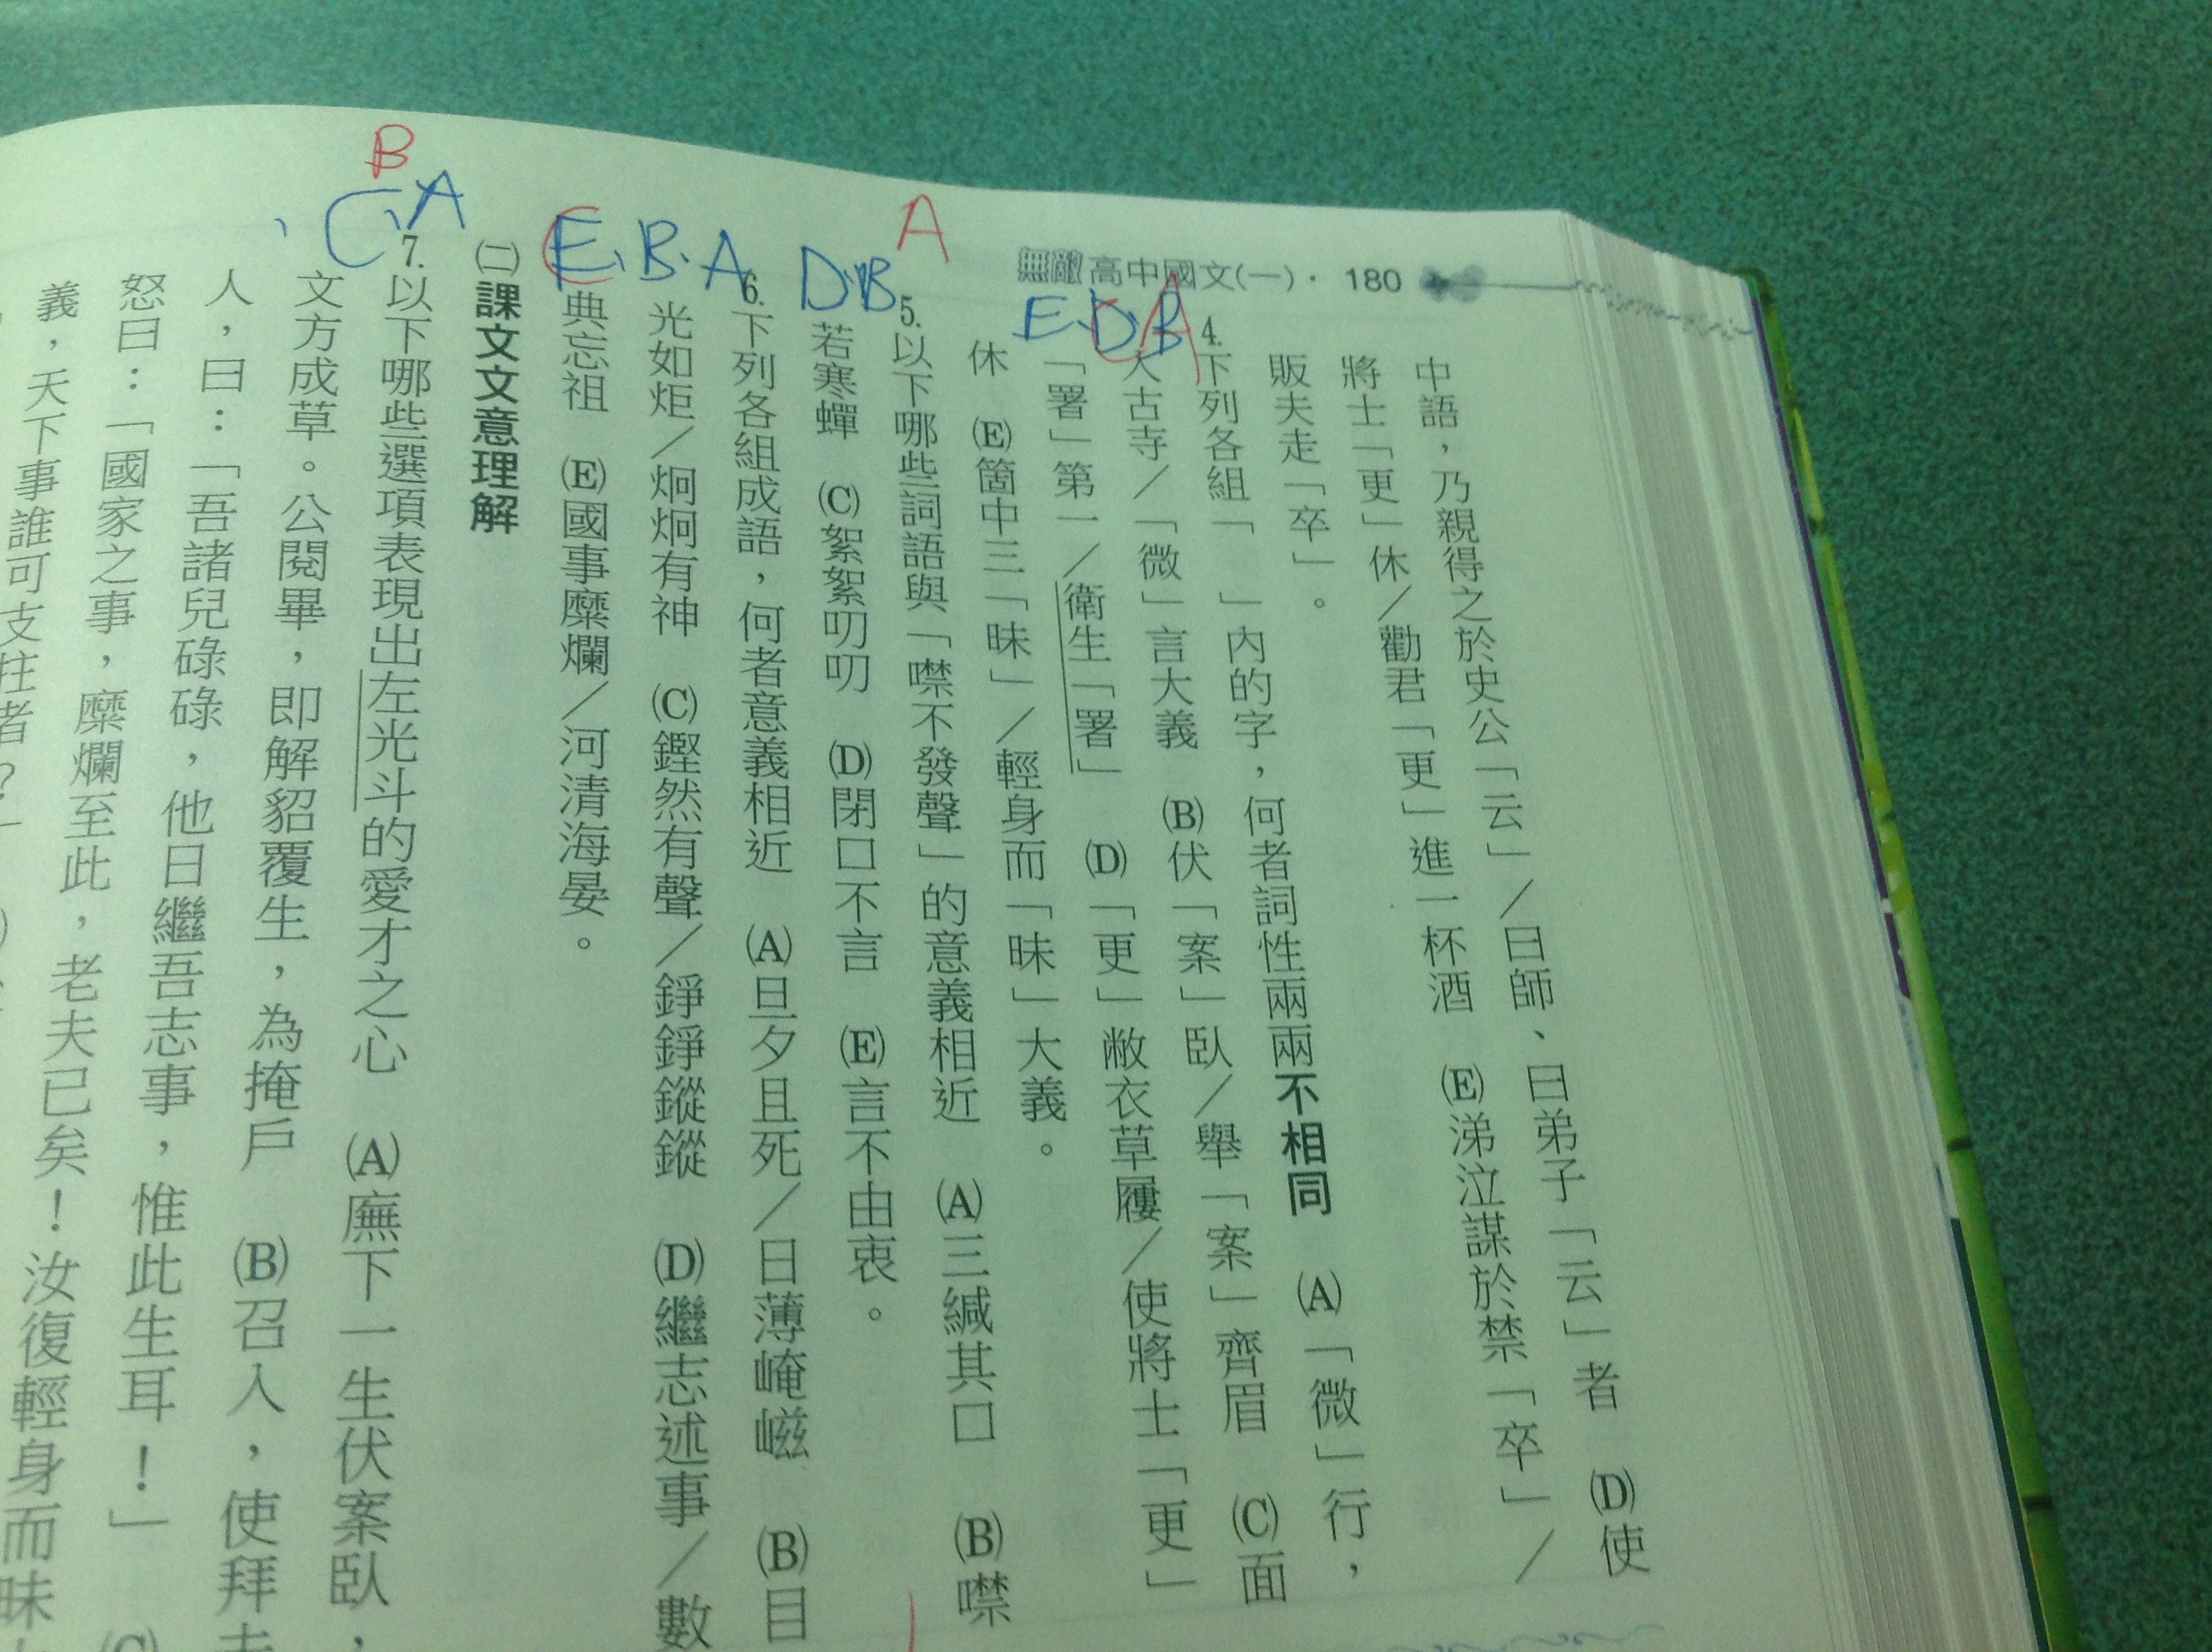 無敵高中國文(一)· 180
中語，乃親得之於史公「云」／曰師、曰弟子「云」者　(D)使
將士「更」休／勸君「更」進一杯酒　(E)涕泣謀於禁「卒」／
販夫走「卒」。
4.下列各組「　」內的字，何者詞性兩兩不相同　(A)「微」行，
入古寺／「微」言大義　(B)伏「案」臥／舉「案」齊眉　(C)面
「署」第一／衛生「署」　(D)「更」敝衣草屨／使將士「更」
休　(E)箇中三「昧」／輕身而「昧」大義。
E、D、B
C
A
5.以下哪些詞語與「噤不發聲」的意義相近　(A)三緘其口　(B)噤
若寒蟬　(C)絮絮叨叨　(D)閉口不言　(E)言不由衷。
D、B
A
6.下列各組成語，何者意義相近　(A)旦夕且死／日薄崦嵫　(B)目
光如炬／炯炯有神　(C)鏗然有聲／錚錚鏦鏦　(D)繼志述事／數
典忘祖　(E)國事糜爛／河清海晏。
E、B、A
C
㈡課文文意理解
7.以下哪些選項表現出左光斗的愛才之心　(A)廡下一生伏案臥，
文方成草。公閱畢，即解貂覆生，為掩戶　(B)召入，使拜夫
人，曰：「吾諸兒碌碌，他日繼吾志事，惟此生耳！」　(C)
怒曰：「國家之事，糜爛至此，老夫已矣！汝復輕身而昧
義，天下事誰可支拄者？」
C、A
B